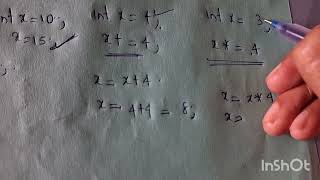 int x=10;
x=15;
int x=4;
x+=4;
x=x+4
x=4+4=8;
int x=3;
x*=4
x=x*4
x=
InShOt